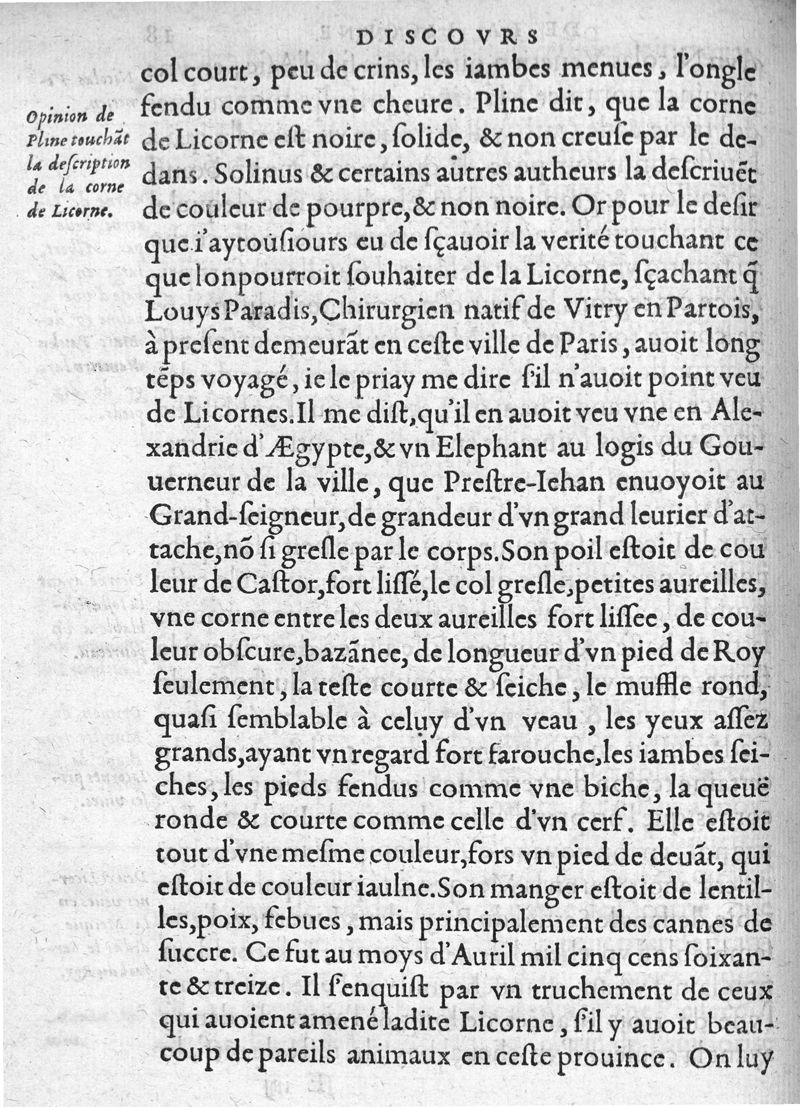 DISCOVRS
col court, peu de crins, les iambes menues, l'ongle
fendu comme vne cheure. Pline dit, que la corne
de Licorne eſt noire, ſolide, & non creuſe par le de-
dans. Solinus & certains autres autheurs la deſcriuẽt
de couleur de pourpre, & non noire. Or pour le deſir
que i'aytouſiours eu de ſçauoir la verité touchant ce
que lonpourroit ſouhaiter de la Licorne, ſçachant q̃
Louys Paradis, Chirurgien natif de Vitry en Partois,
à preſent demeurãt en ceſte ville de Paris, auoit long
tẽps voyagé, ie le priay me dire ſil n'auoit point veu
de Licornes. Il me diſt, qu'il en auoit veu vne en Ale-
xandrie d'Ægypte, & vn Elephant au logis du Gou-
uerneur de la ville, que Preſtre-Iehan enuoyoit au
Grand-ſeigneur, de grandeur d'vn grand leurier d'at-
tache, nõ ſi greſle par le corps. Son poil eſtoit de cou
leur de Caſtor, fort liſſé, le col greſle, petites aureilles,
vne corne entre les deux aureilles fort liſſee, de cou-
leur obſcure, bazãnee, de longueur d'vn pied de Roy
ſeulement, la teſte courte & ſeiche, le muffle rond,
quaſi ſemblable à celuy d'vn veau, les yeux aſſez
grands, ayant vn regard fort farouche, les iambes ſei-
ches, les pieds fendus comme vne biche, la queuë
ronde & courte comme celle d'vn cerf. Elle eſtoit
tout d'vne meſme couleur, fors vn pied de deuãt, qui
eſtoit de couleur iaulne. Son manger eſtoit de lentil-
les, poix, febues, mais principalement des cannes de
ſuccre. Ce fut au moys d'Auril mil cinq cens ſoixan-
te & treize. Il ſenquiſt par vn truchement de ceux
qui auoient amené ladite Licorne, ſil y auoit beau-
coup de pareils animaux en ceſte prouince. On luy
Opinion de
Pline touchãt
la deſcription
de la corne
de Licorne.